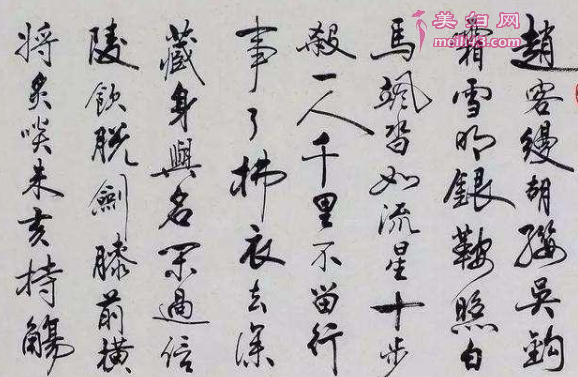 趙客縵胡纓吳鉤
霜雪明銀鞍照白
馬颯沓如流星十步
殺一人千里不留行
事了拂衣去深
藏身與名閑過信
陵飲脫劍膝前橫
將炙啖朱亥持觴
美妇网
meili43.com